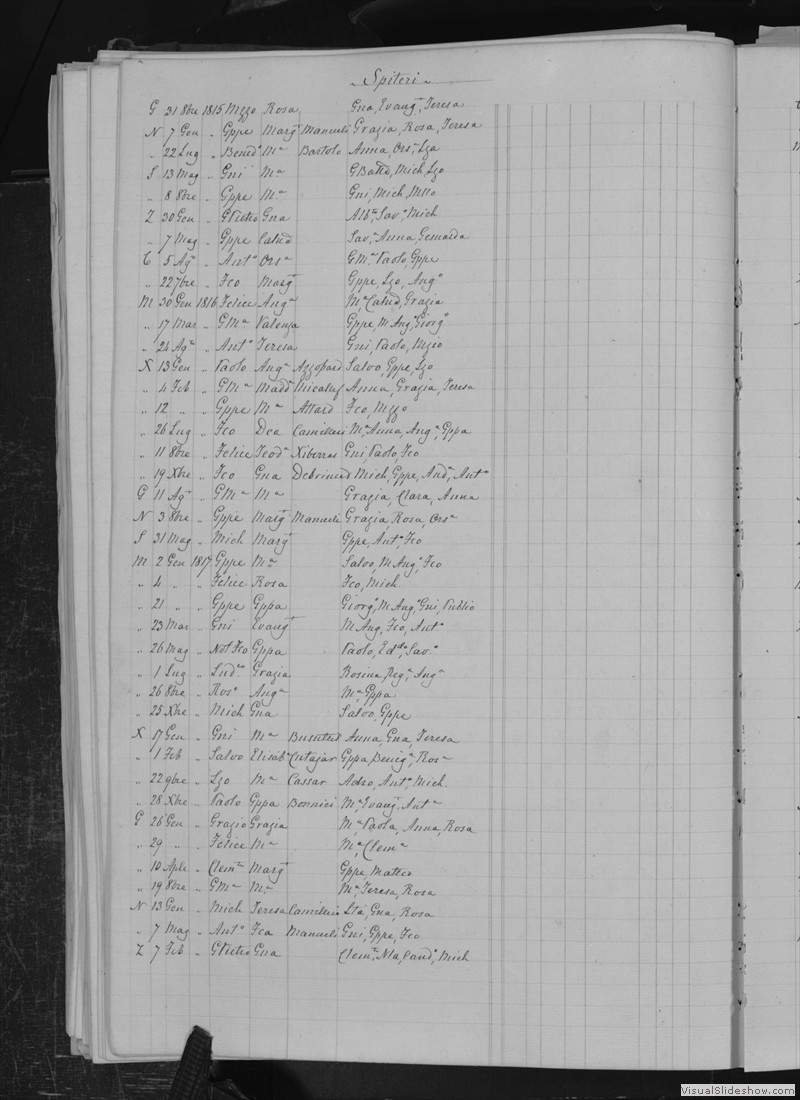 Spiteri
G 31 8bre 1815 Mzzo Rosa Gna, Evangta, Teresa
N 7 Gen " Gppe Margta Manueli Grazia, Rosa, Teresa
" 22 Lug " Bened Ma Bartolo Anna, Orsa, Lza
S 13 Mag " Gni Ma G Batta, Mich, Lzo
" 8 8bre " Gppe Ma Gni, Mich, Mzzo
Z 30 Gen " GPietro Gna Savo, Mich
" 7 Mag " Gppe Catna Sava, Anna, Genarda
C 5 Ago " Anto Orsa GMa, Paolo, Gppe
" 22 7bre " Fco Margta Gppe, Lzo, Ango
M 30 Gen 1816 Felice Anga Ma, Catna, Grazia
" 17 Mar " GMa Valenza Gppe, M Anga, Giorgo
" 24 Ago " Anto Teresa Gni, Paolo, Mzio
X 13 Gen " Paolo Anga Azzopard Salvo, Gppe, Lzo
" 4 Feb " GMa Madda Micalef Anna, Grazia, Teresa
" 12 " " Gppe Ma Attard Fco, Mzzo
" 26 Lug " Fco Dea Camilleri Ma Anna, Anga, Gppa
" 11 8bre " Felice Teoda Xiberras Gni Paolo, Fco
" 19 Xbre " Fco Gna Debrincat Mich, Gppe, Anda, Anto
G 11 Ago " GMa Ma Grazia, Clara, Anna
N 3 8bre " Gppe Margta Manueli Grazia, Rosa, Orsa
S 31 Mag " Mich Margta Gppe, Anto, Fco
M 2 Gen 1817 Gppe Ma Salvo, M Ango, Fco
" 4 " " Felice Rosa Fco, Mich
" 21 " " Gppe Gppa Giorgo, M Ango, Gni, Publio
" 23 Mar " Gni Evangta M Ang, Fco, Anto
" 26 Mag " Not Fco Gppa Paolo, Savo
" 1 Lug " Ludco Grazia Rosina, Rega, Anga
" 26 8bre " Roso Anga Ma, Gppa
" 25 Xbre " Mich Gna Salvo, Gppe
X 17 Gen " Gni Ma Busuttil Anna, Gna, Teresa
" 1 Feb " Salvo Elisab Cutajar Gppa, Beniga, Rosa
" 22 9bre " Lzo Ma Cassar Anto, Mich
" 28 Xbre " Paolo Gppa Bonnici Ma, Evangta, Anta
G 26 Gen " Grazio Grazia Ma, Paola, Anna, Rosa
" 29 " " Felice Ma Ma, Clema
" 10 Aple " Clemte Margta Gppe, Matteo
" 19 8bre " GMa Ma Ma, Teresa, Rosa
N 13 Gen " Mich Teresa Camilleri Gna, Rosa
" 7 Mag " Anto Fca Manueli Gni, Gppe, Fco
Z 7 Feb " GPietro Gna Clemte, Nta, Cando, Mich
VisualSlideshow.com